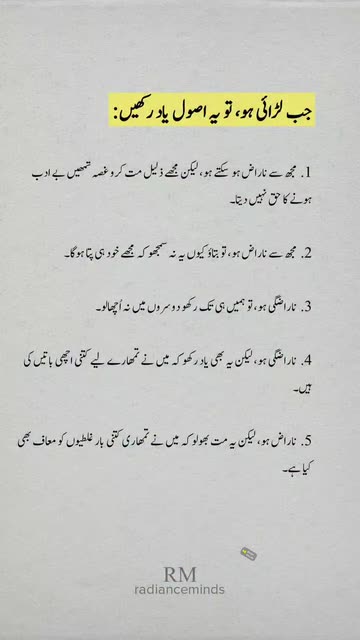 جب لڑائی ہو، تو یہ اصول یاد رکھیں:
1. مجھ سے ناراض ہو سکتے ہو، لیکن مجھے ذلیل مت کرو غصہ تمھیں بے ادب
ہونے کا حق نہیں دیتا۔
2. مجھ سے ناراض ہو، تو بتاؤ کیوں یہ نہ سمجھو کہ مجھے خود ہی پتا ہوگا۔
3. ناراضگی ہو، تو ہمیں ہی تک رکھو دوسروں میں نہ اُچھالو۔
4. ناراضگی ہو، لیکن یہ بھی یاد رکھو کہ میں نے تمھارے لیے کتنی اچھی باتیں کی
ہیں۔
5. ناراض ہو، لیکن یہ مت بھولو کہ میں نے تمھاری کتنی بار غلطیوں کو معاف بھی
کیا ہے۔
RM
radianceminds